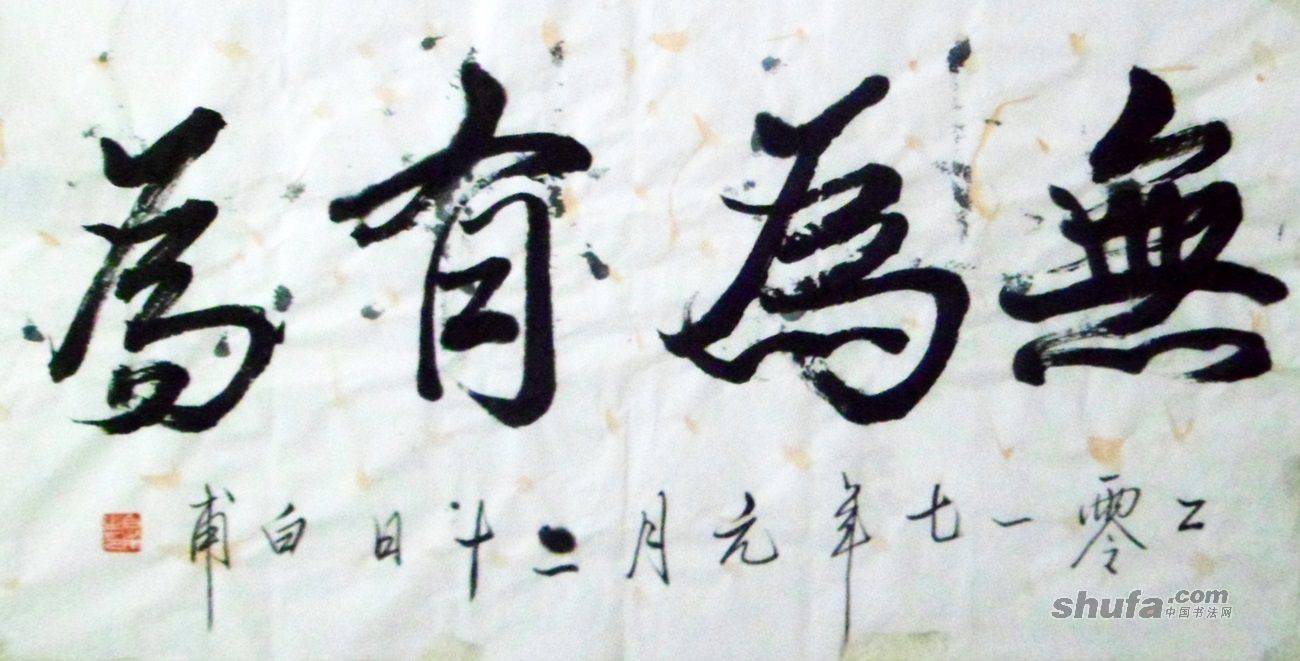 無為有為
二零一七年元月二十日白甫
shufa.com
中国书法网